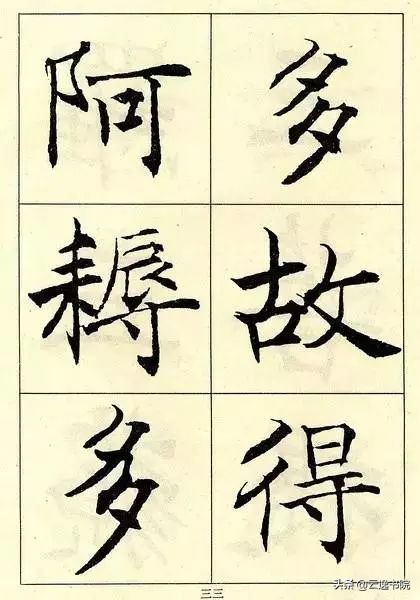 多故得
阿耨多
三三
头条@云逸书院